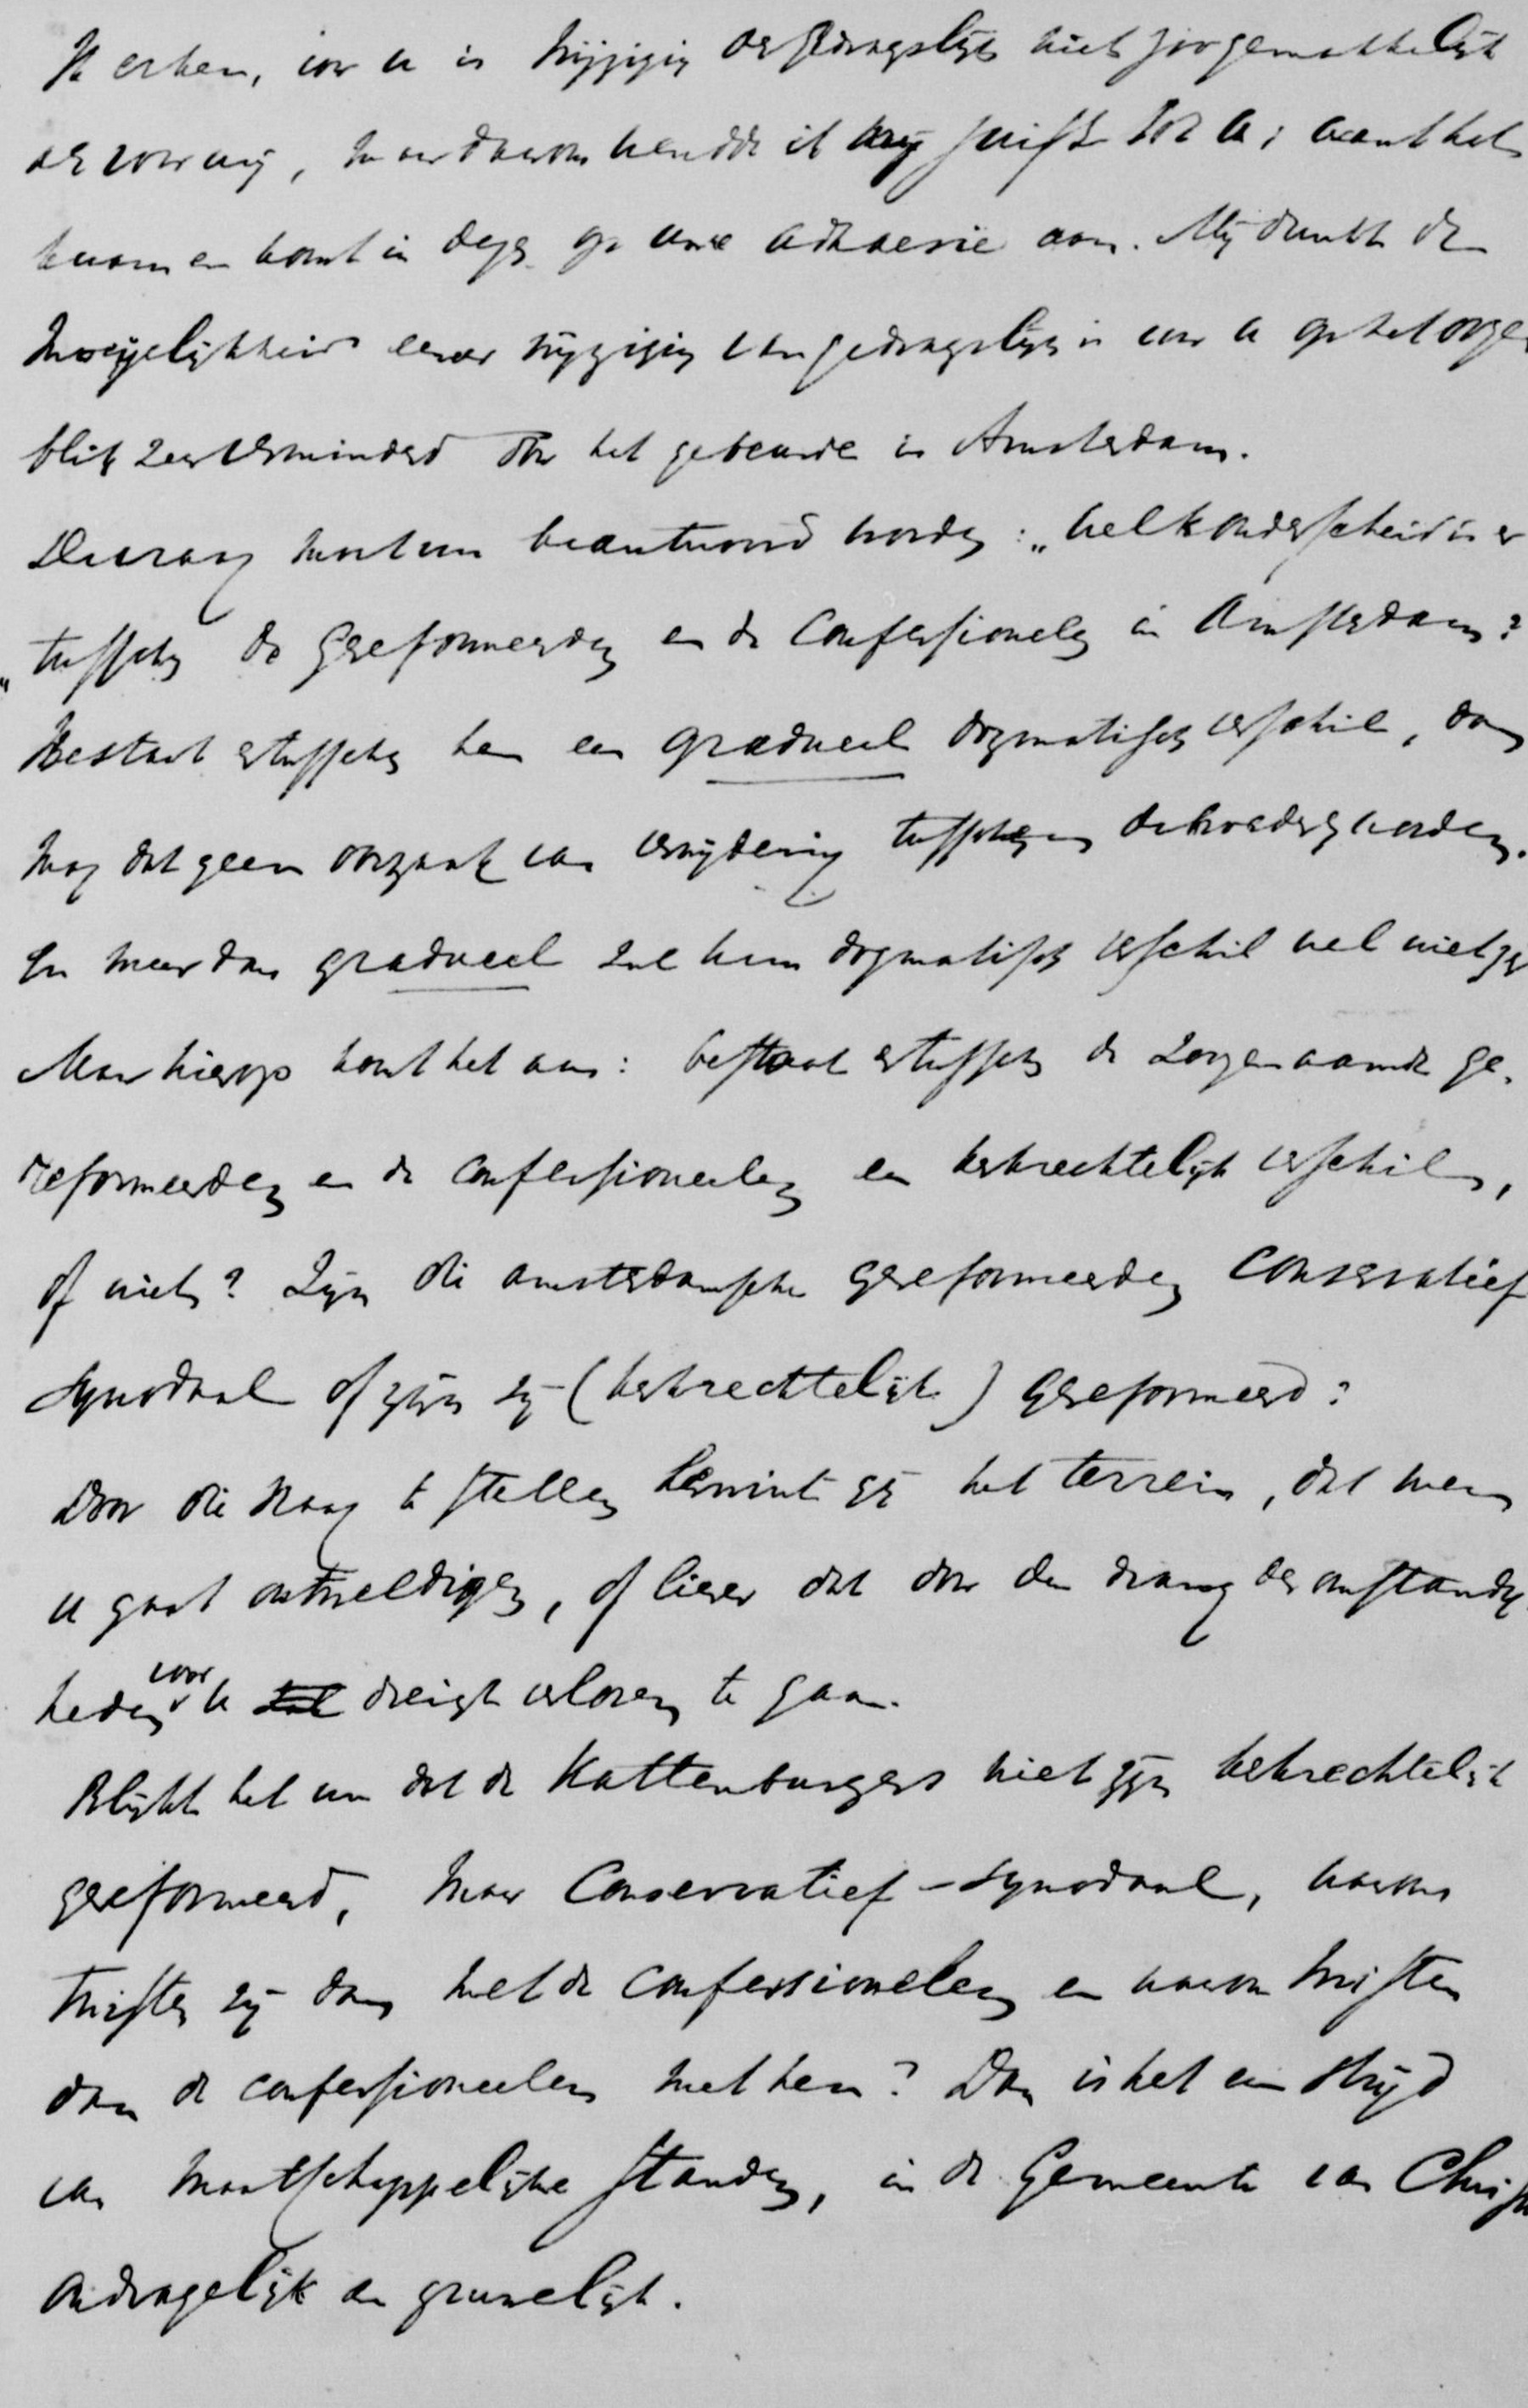 Ik erken, voor u is wijziging der gedragslijn niet zoo gemakkelijk
als voor mij, maar daarom wendde ik mij juist tot u; want het
kwam en komt in dezen op uwe adhaesie aan. Mij dunkt de
moeijelijkheid eener wijziging van gedragslijn is voor u op het oogen
blik zeer verminderd door het gebeurde in Amsterdam.
De vraag moet nu beantwoord worden: „welk onderscheid is er
„tusschen de Gereformeerden en de Confessionelen in Amsterdam?
Bestaat er tusschen hen een gradueel dogmatisch verschil, dan
mag dat geen oorzaak van verwijdering tusschen de broeders worden.
En meer dan gradueel zal hun dogmatisch verschil wel niet zijn
Maar hierop komt het aan: bestaat er tusschen de zoogenaamde ge-
reformeerden en de confessioneelen een kerkrechtelijk verschil,
of niet? Zijn die amsterdamsche gereformeerden Conservatief
Synodaal of zijn zij (kerkrechtelijk) Gereformeerd?
Door die vraag te stellen herwint gij het terrein, dat men
u gaat ontweldigen, of liever dat door den drang der omstandig
heden voor u dreigt verloren te gaan.
Blijkt het nu dat de Kattenburgers niet zijn kerkrechtelijk
gereformeerd, maar Conservatief-Synodaal, waarom
twisten zij dan met de confessionelen en waarom twisten
dan de confessioneelen met hen? Dan is het een strijd
van maatschappelijke standen, in de Gemeente van Christus
ondragelijk en gruwelijk.